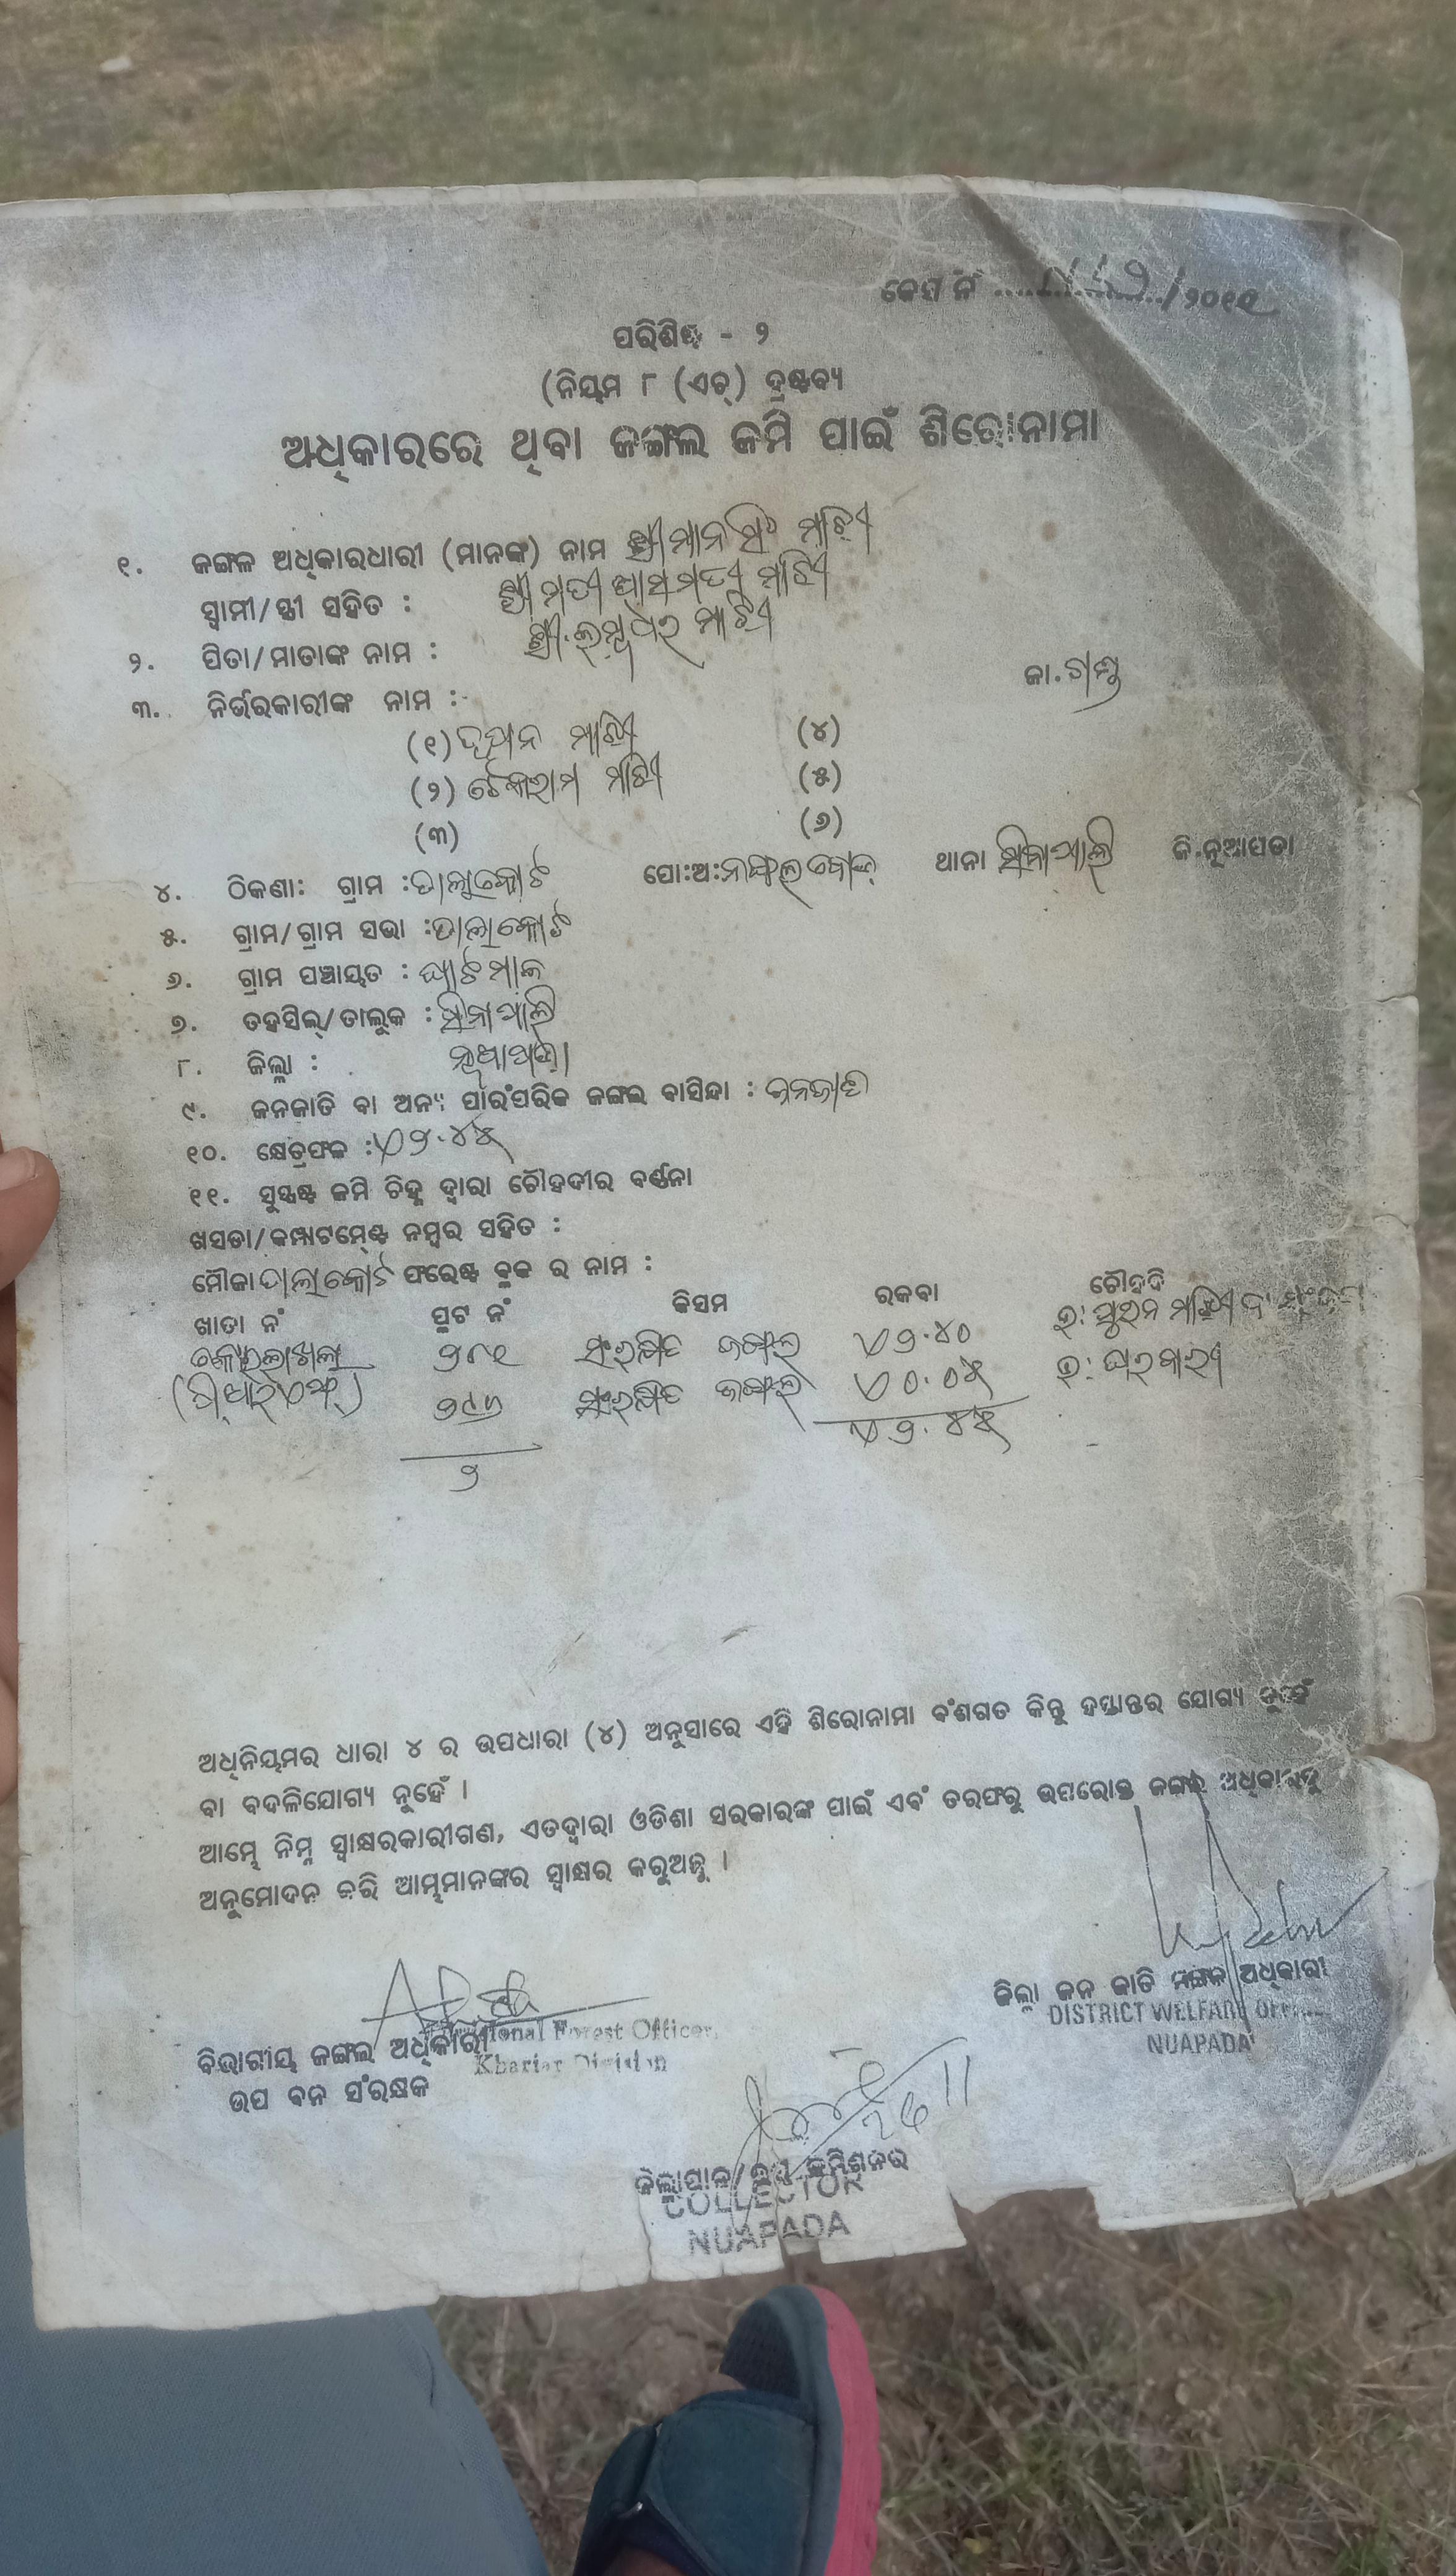 କେସ ନଂ ............/୨୦୧୧
ପରିଶିଷ୍ଟ - ୨
(ନିୟମ ୮ (ଏଚ୍) ଦ୍ରଷ୍ଟବ୍ୟ
ଅଧିକାରରେ ଥିବା ଜଙ୍ଗଲ ଜମି ପାଇଁ ଶିରୋନାମା
୧. ଜଙ୍ଗଳ ଅଧିକାରଧାରୀ (ମାନଙ୍କ) ନାମ ଶ୍ରୀ ମାନସିଂ ମାଝି
ସ୍ୱାମୀ/ସ୍ତ୍ରୀ ସହିତ : ଶ୍ରୀମତୀ ମାଝି
୨. ପିତା/ମାତାଙ୍କ ନାମ : ଶ୍ରୀ. ମାଝି
୩. ନିର୍ଭରକାରୀଙ୍କ ନାମ :- ଜା. ଗଣ୍ଡ
(୧) ମାଝି (୪)
(୨) ଟେକରାମ ମାଝି (୫)
(୩) (୬)
୪. ଠିକଣା: ଗ୍ରାମ : ତାଲାକୋଟ ପୋ:ଅ: ଥାନା ସିନାପାଲି ଜି.ନୂଆପଡା
୫. ଗ୍ରାମ/ଗ୍ରାମ ସଭା : ତାଲାକୋଟ
୬. ଗ୍ରାମ ପଞ୍ଚାୟତ : ଘାଟମାଲ
୭. ତହସିଲ୍/ତାଲୁକ : ସିନାପାଲି
୮. ଜିଲ୍ଲା : ନୂଆପଡ଼ା
୯. ଜନଜାତି ବା ଅନ୍ୟ ପାରଂପରିକ ଜଙ୍ଗଲ ବାସିନ୍ଦା : ଜନଜାତି
୧୦. କ୍ଷେତ୍ରଫଳ : ୨.୪୫
୧୧. ସୁସ୍ପଷ୍ଟ ଜମି ଚିହ୍ନ ଦ୍ୱାରା ଚୌହଦୀର ବର୍ଣ୍ଣନା
ଖସଡା/କମ୍ପାଟମେଣ୍ଟ ନମ୍ବର ସହିତ :
ମୌଜା ତାଲାକୋଟ ଫରେଷ୍ଟ ବ୍ଲକ ର ନାମ :
ଖାତା ନଂ ପ୍ଲଟ ନଂ କିସମ ରକବା ଚୌହଦି
୨୮୧ ସଂରକ୍ଷିତ ଜଙ୍ଗଲ ୨.୪୦ ମାଝି
ସଂରକ୍ଷିତ ଜଙ୍ଗଲ ୦.୦୫ ଘରବାରୀ
୨ ୨.୪୫
ଅଧିନିୟମର ଧାରା ୪ ର ଉପଧାରା (୪) ଅନୁସାରେ ଏହି ଶିରୋନାମା ବଂଶଗତ କିନ୍ତୁ ହସ୍ତାନ୍ତର ଯୋଗ୍ୟ ନୁହେଁ
ବା ବଦଳିଯୋଗ୍ୟ ନୁହେଁ ।
ଆମ୍ଭେ ନିମ୍ନ ସ୍ୱାକ୍ଷରକାରୀଗଣ, ଏତଦ୍ୱାରା ଓଡିଶା ସରକାରଙ୍କ ପାଇଁ ଏବଂ ତରଫରୁ ଉପରୋକ୍ତ ଜଙ୍ଗଲ ଅଧିକାରକୁ
ଅନୁମୋଦନ କରି ଆମ୍ଭମାନଙ୍କର ସ୍ୱାକ୍ଷର କରୁଅଛୁ ।
ଜିଲ୍ଲା ଜନ ଜାତି ମଙ୍ଗଳ ଅଧିକାରୀ
DISTRICT WELFARE
NUAPADA
ବିଭାଗୀୟ ଜଙ୍ଗଲ ଅଧିକାରୀ Forest Officer,
ଉପ ବନ ସଂରକ୍ଷକ Khariar Division
ଜିଲ୍ଲାପାଳ/ଡେପୁଟି କମିଶ୍ନର
COLLECTOR
NUAPADA